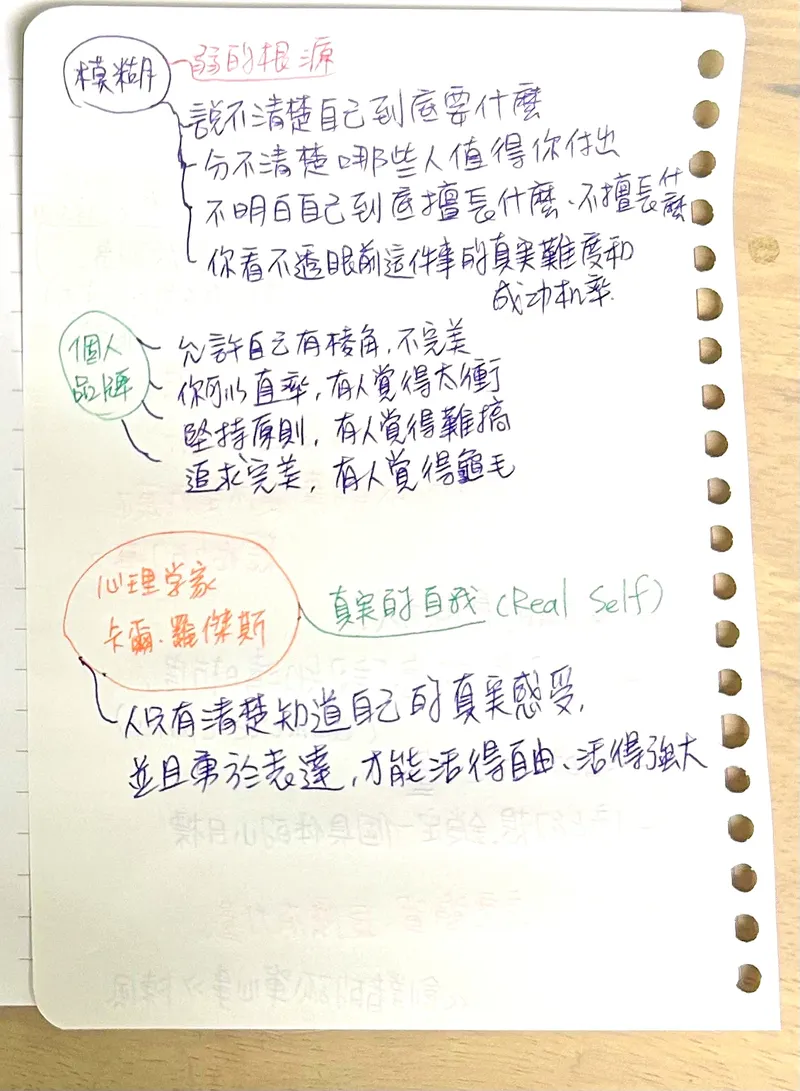 模糊 弱的根源
說不清楚自己到底要什麼
分不清楚哪些人值得你付出
不明白自己到底擅長什麼、不擅長什麼
你看不透眼前這件事的真实難度和
成功机率.
個人
品牌
允許自己有棱角,不完美
你可以直率,有人覺得太衝
堅持原則,有人覺得難搞
追求完美,有人覺得龜毛
心理学家
卡爾.羅傑斯
真实的自我(Real Self)
人只有清楚知道自己的真实感受,
並且勇於表達,才能活得自由、活得強大